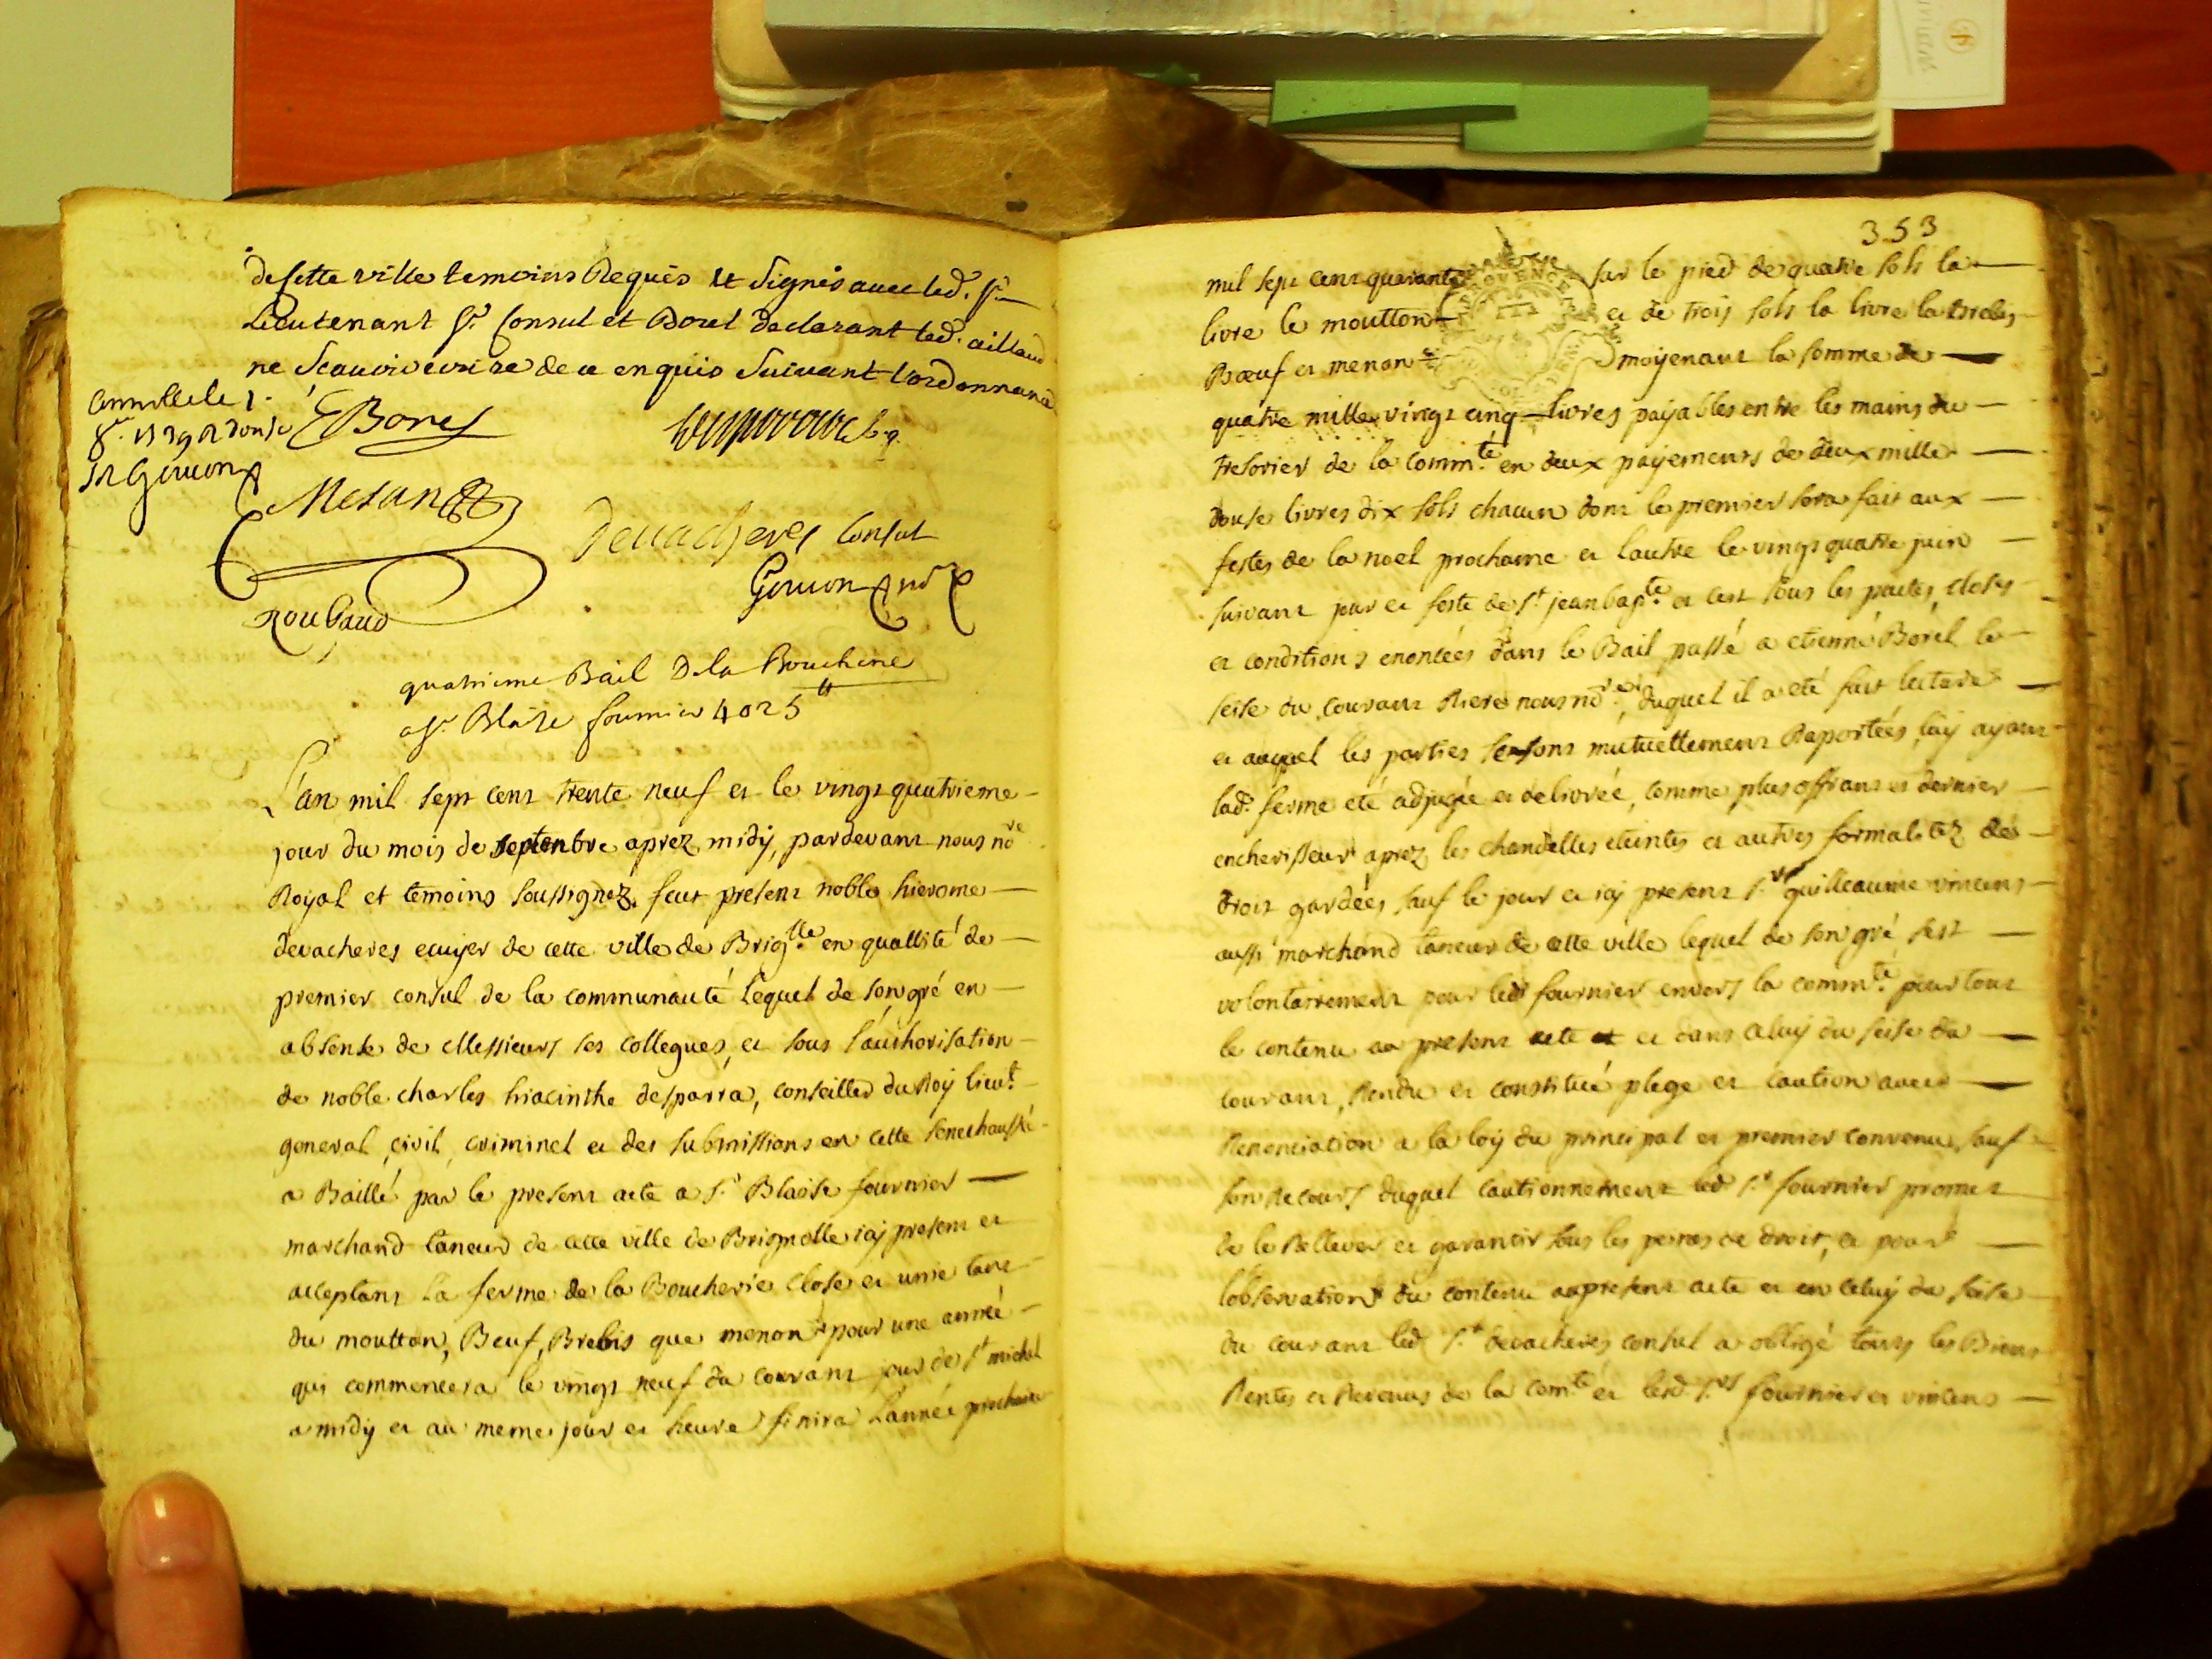 de cette ville temoins Requis et signés avec led. Sr.
Lieutenant Sr. Consul et Borel declarant led. aillaud
ne scavoir ecrire de ce enquis suivant l'ordonnance
Conrollé le
Gouion
EBorel
Mesan
devacheres Consul
Gouion nore
Roubaud
quatrieme Bail De la Boucherie
a Sr. Blaise fournier 4025 ll
L'an mil sept cent trente neuf et le vingt quatrieme
jour du mois de septenbre aprez midy, pardevant nous nore
Royal et temoins soussignez, feut present noble hierome
devacheres ecuyer de cette ville de Briglle en quallité de
premier consul de la communauté lequel de son gré en
absence de Messieurs ses collegues, et sous l'authorisation
de noble charles hiacinthe desparra, conseiller du Roy lieut.
general, civil, criminel et des submissions en cette senechaussée
a Baillé par le present acte a Sr. Blaise fournier
marchand taneur de cette ville de Brignolle icy present et
acceptant La ferme de la Boucherie close et unie tant
du moutton, Beuf, Brebis que menon pour une année
qui commencera le vingt neuf du courant jour de St michel
a midy et au meme jour et heure finira L'année prochaine
353
mil sept cent quarante sur le pied de quatre sols la
livre le moutton et de trois sols la livre la brebis
Bœuf et menon moyenant la somme de
quatre mille vingt cinq livres payables entre les mains du
tresorier de la commté. en deux payements de deux mille
douse livres dix sols chacun dont le premier sera fait aux
festes de la noel prochaine et l'autre le vingt quatre juin
suivant jour et feste de St jean bapte. et cest sous les pactes, closes
et conditions enoncées dans le Bail passé a etienne Borel le
seise du courant Riere nous nore., duquel il a eté fait lecture
et auquel les parties se sont mutuellement Raportées, luy ayant
lad. ferme eté adjugée et delivrée, comme plus offrant et dernier
encherisseur aprez les chandelles eteintes et autres formalitez de
droit gardées, sauf le jour et icy present Sr guilleaume vincens
aussi marchand taneur de cette ville lequel de son gré sest
volontairement pour led fournier envers la commté. pour tout
le contenu au present acte et dans celuy du seise du
courant, Rendu et constitué plege et caution avec
Renonciation a la loy du principal et premier convenu, sauf
son recours duquel cautionnement led Sr. fournier promet
de le Rellever et garantir sous les peines de droit, et pour
lobservation du contenu au present acte et en celuy du seise
du courant led Sr. devacheres consul a obligé touts les Biens
Rentes et Revenus de la comté et lesd. Srs fournier et vincens